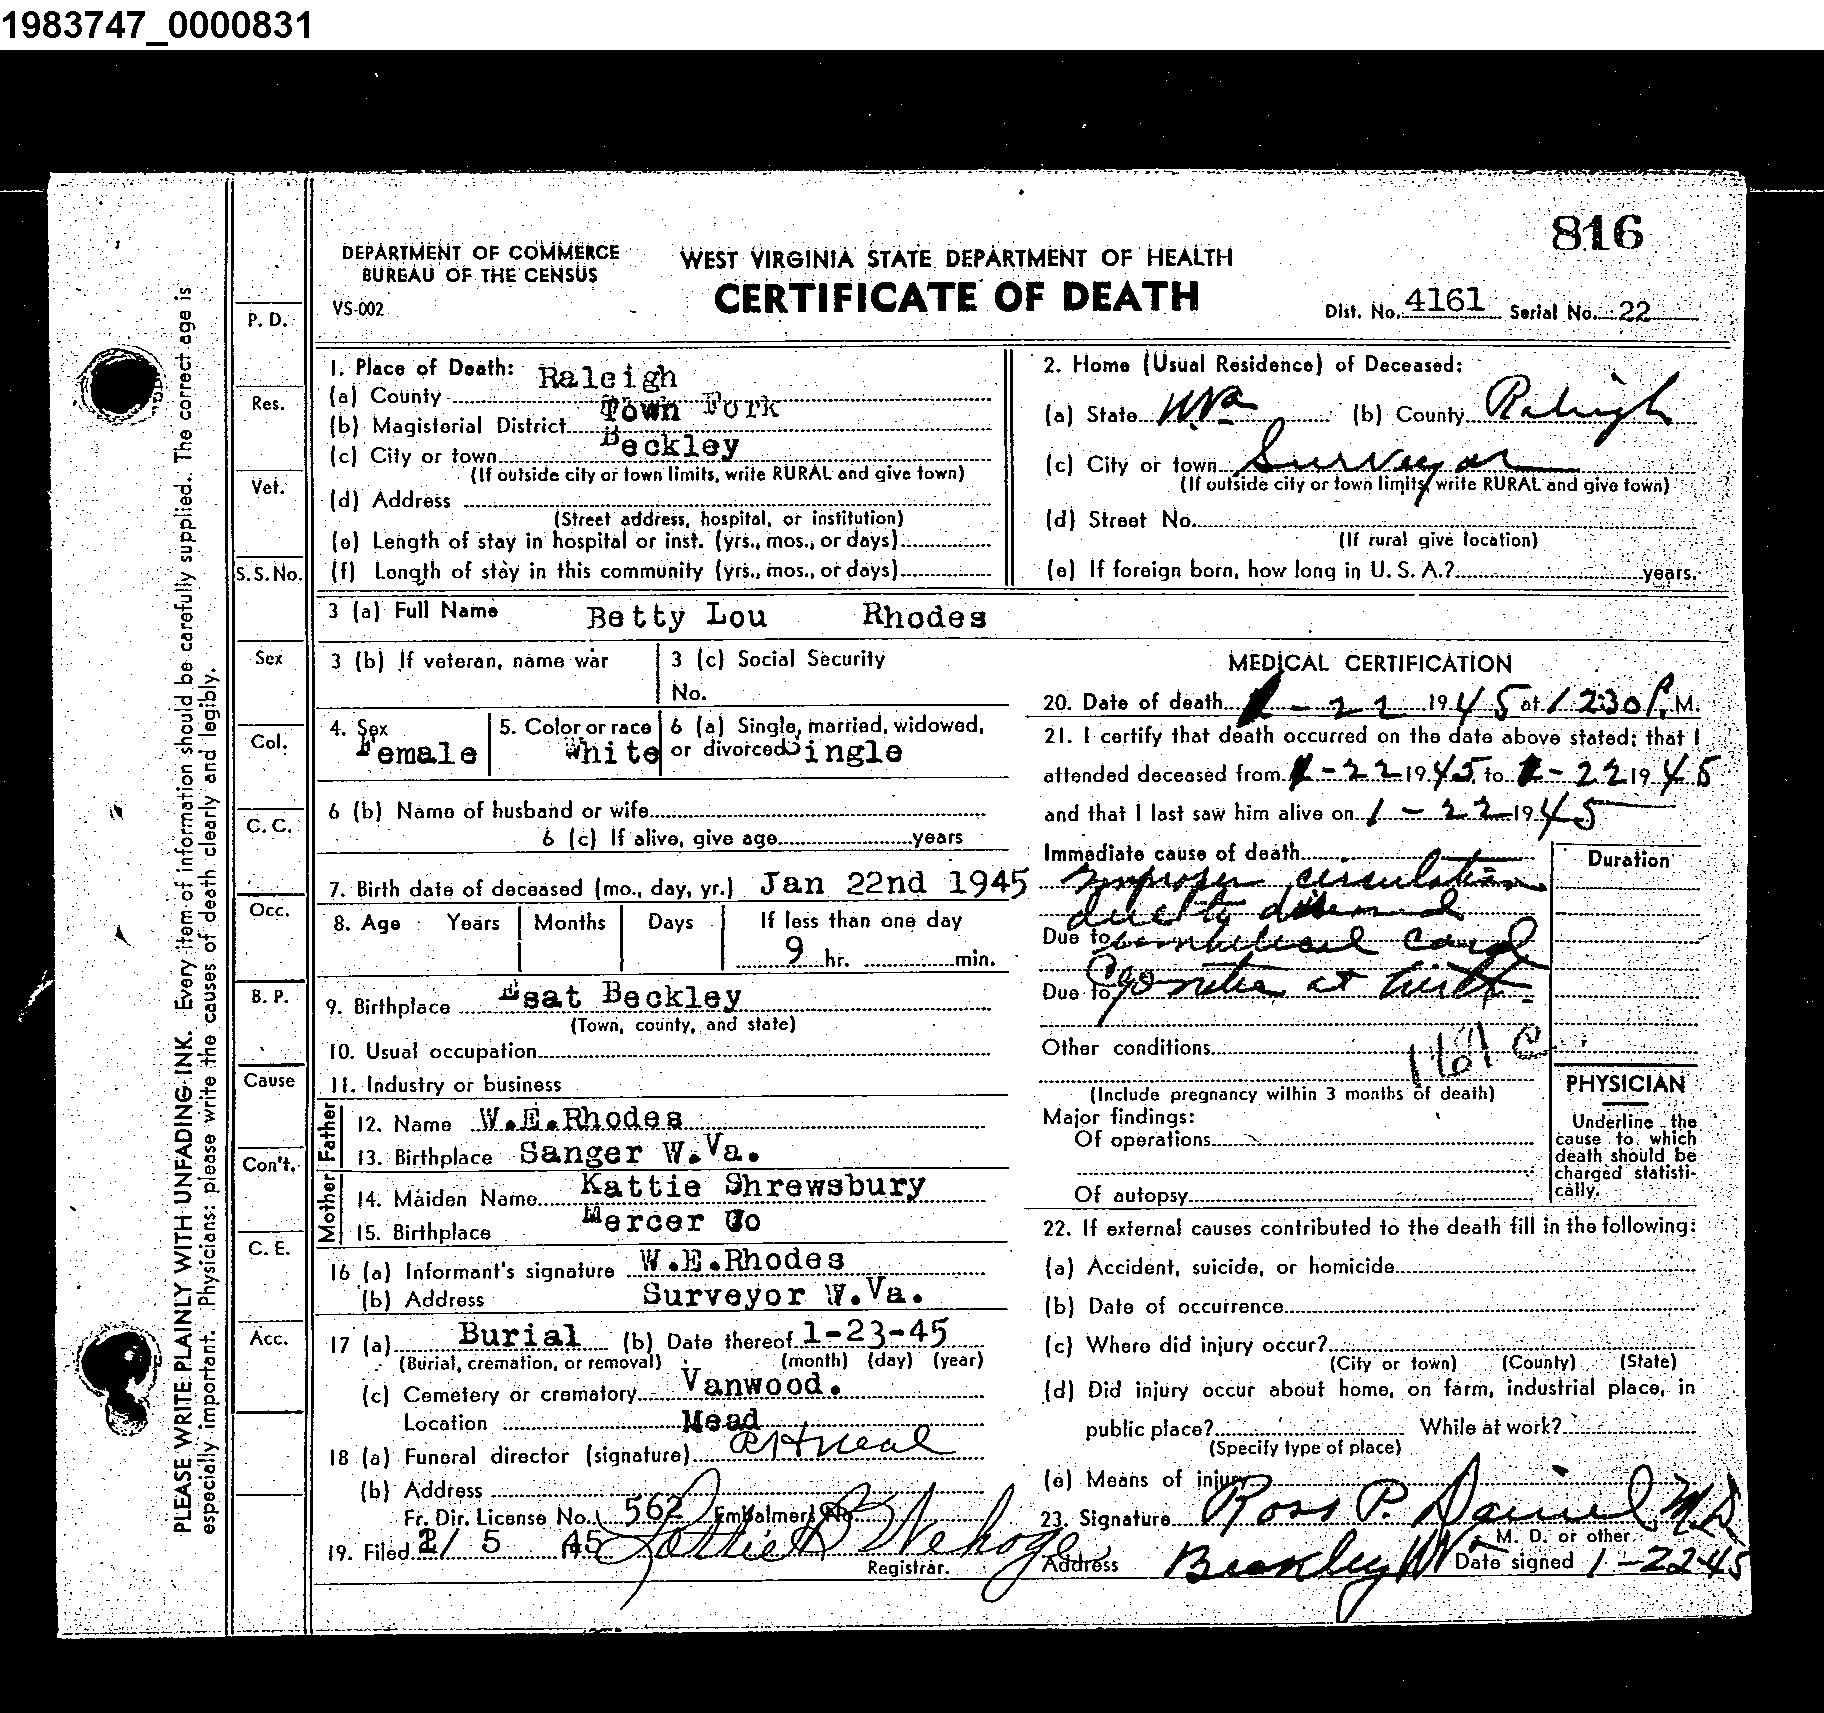 1983747_0000831
816
DEPARTMENT OF COMMERCE
BUREAU OF THE CENSUS
VS-002
WEST VIRGINIA STATE DEPARTMENT OF HEALTH
CERTIFICATE OF DEATH
Dist. No. 4161 Serial No. 22
PLEASE WRITE PLAINLY WITH UNFADING INK. Every item of information should be carefully supplied. The correct age is
especially important. Physicians: please write the causes of death clearly and legibly.
P. D.
Res.
Vet.
S. S. No.
Sex
Col.
C. C.
Occ.
B. P.
Cause
Con't.
C. E.
Acc.
1. Place of Death:
(a) County Raleigh
(b) Magisterial District Town Fork
(c) City or town Beckley
(If outside city or town limits, write RURAL and give town)
(d) Address
(Street address, hospital, or institution)
(e) Length of stay in hospital or inst. (yrs., mos., or days)
(f) Length of stay in this community (yrs., mos., or days)
2. Home (Usual Residence) of Deceased:
(a) State W Va (b) County Raleigh
(c) City or town Surveyor
(If outside city or town limits, write RURAL and give town)
(d) Street No.
(If rural give location)
(e) If foreign born, how long in U. S. A.? years.
3 (a) Full Name Betty Lou Rhodes
3 (b) If veteran, name war
3 (c) Social Security
No.
4. Sex Female
5. Color or race White
6 (a) Single, married, widowed,
or divorced Single
6 (b) Name of husband or wife
6 (c) If alive, give age years
7. Birth date of deceased (mo., day, yr.) Jan 22nd 1945
8. Age Years Months Days If less than one day
9 hr. min.
9. Birthplace Esat Beckley
(Town, county, and state)
10. Usual occupation
11. Industry or business
Father
12. Name W.E.Rhodes
13. Birthplace Sanger W.Va.
Mother
14. Maiden Name Kattie Shrewsbury
15. Birthplace Mercer Co
16 (a) Informant's signature W.E.Rhodes
(b) Address Surveyor W.Va.
17 (a) Burial (b) Date thereof 1-23-45
(Burial, cremation, or removal) (month) (day) (year)
(c) Cemetery or crematory Vanwood.
Location Mead
18 (a) Funeral director (signature) Neal
(b) Address
Fr. Dir. License No. 562 Embalmer's No.
19. Filed 2/ 5 45 Lottie
Registrar.
MEDICAL CERTIFICATION
20. Date of death 1-22 1945 at 1230 P. M.
21. I certify that death occurred on the date above stated; that I
attended deceased from 1-22 1945 to 1-22 1945
and that I last saw him alive on 1-22-1945
Immediate cause of death
Duration
Improper circulation
due to
Due to umbilical cord
Due to at birth
Other conditions
(Include pregnancy within 3 months of death)
161 C
Major findings:
Of operations
Of autopsy
PHYSICIAN
Underline the
cause to which
death should be
charged statisti-
cally.
22. If external causes contributed to the death fill in the following:
(a) Accident, suicide, or homicide
(b) Date of occurrence
(c) Where did injury occur?
(City or town) (County) (State)
(d) Did injury occur about home, on farm, industrial place, in
public place? While at work?
(Specify type of place)
(e) Means of injury
23. Signature Ross P. Daniel M.D.
M. D. or other
Address W Date signed 1-22-45